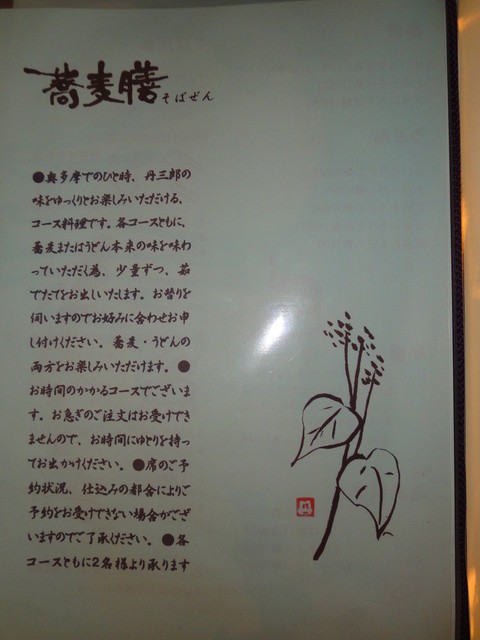 蕎麦膳 そばぜん
●奥多摩でのひと時、丹三郎の
味をゆっくりとお楽しみいただける、
コース料理です。各コースともに、
蕎麦またはうどん本来の味を味わ
っていただく為、少量ずつ、茹
でたてをお出しいたします。お替りを
伺いますのでお好みに合わせお申
し付けください。蕎麦・うどんの
両方をお楽しみいただけます。●
お時間のかかるコースでございま
す。お急ぎのご注文はお受けでき
ませんので、お時間にゆとりを持っ
てお出かけください。●席のご予
約状況、仕込みの都合によりご
予約をお受けできない場合がござ
いますのでご了承ください。●各
コースともに2名様より承ります